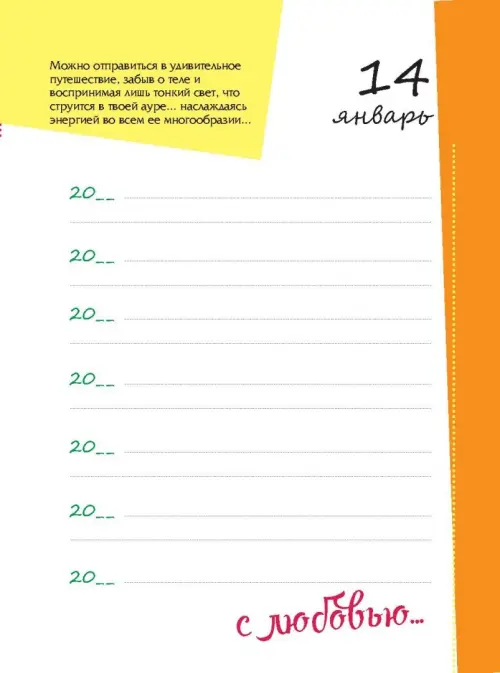 Можно отправиться в удивительное
путешествие, забыв о теле и
воспринимая лишь тонкий свет, что
струится в твоей ауре... наслаждаясь
энергией во всем ее многообразии...
14
январь
20__
20__
20__
20__
20__
20__
20__
с любовью...